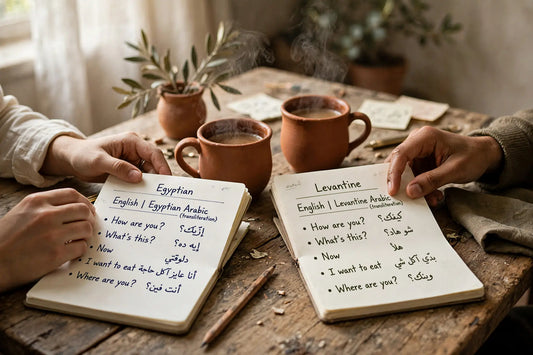 Egyptian
English | Egyptian Arabic
(transliteration)
• How are you? إزيّك؟
• What's this? إيه ده؟
• Now دلوقتي
• I want to eat أنا عايز أكل حاجة
• Where are you? أنت فين؟
Levantine
English | Levantine Arabic
(transliteration)
• How are you? كيفك؟
• What's this? شو هاد؟
• Now هلا
• I want to eat بدّي أكل شي
• Where are you? وينك؟